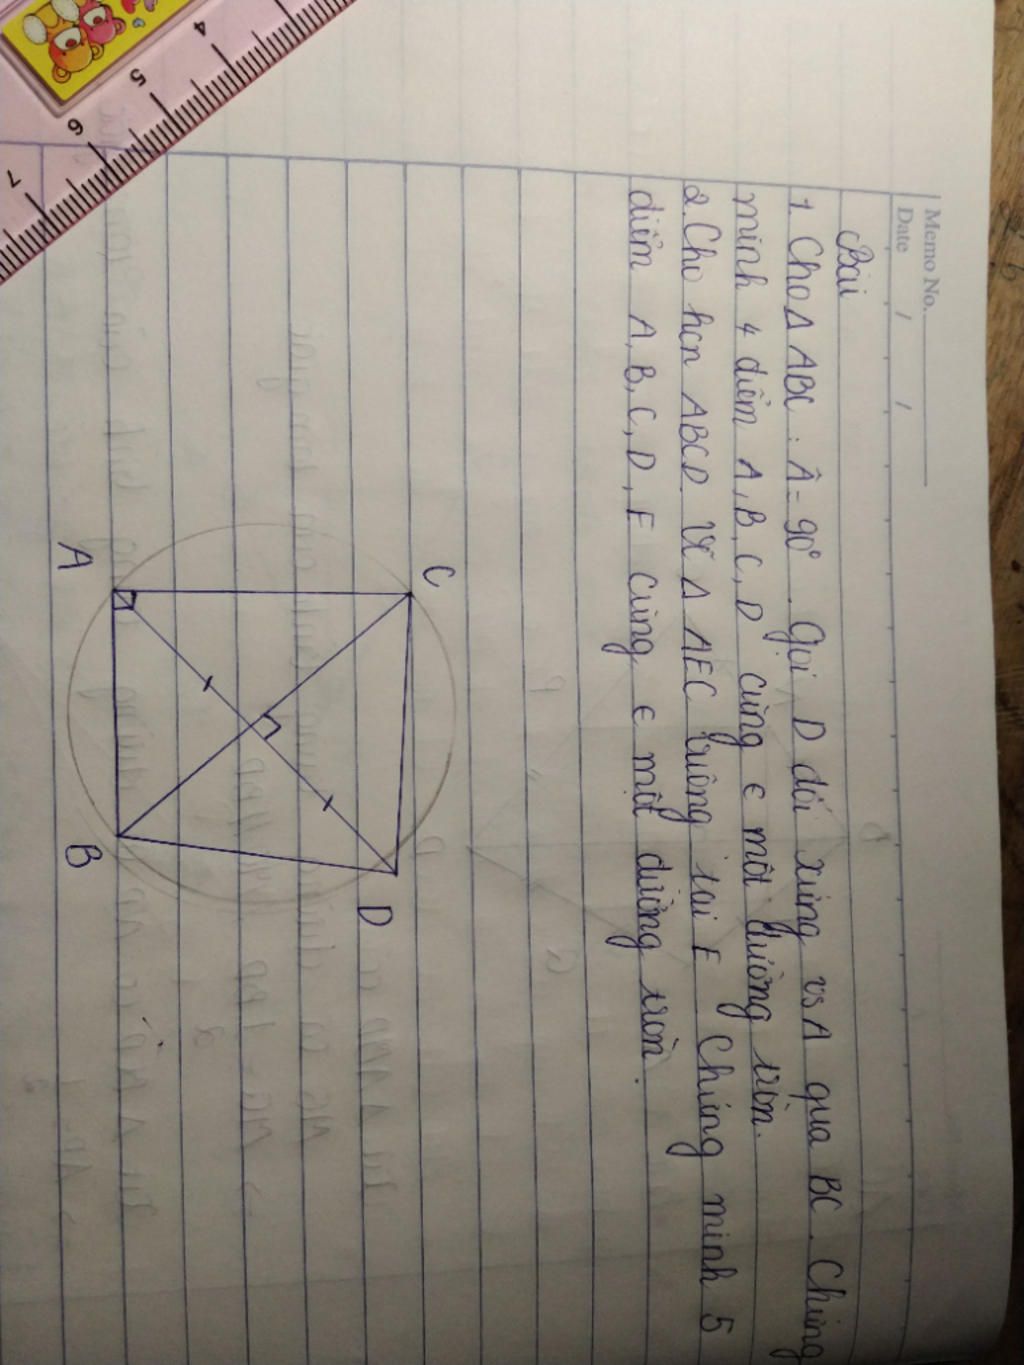 Memo No.
Date / /
Bài
1. Cho Δ ABC : Â = 90°. Gọi D đối xứng vs A qua BC. Chứng
minh 4 điểm A, B, C, D cùng ∈ một đường tròn.
2. Cho hcn ABCD. Vẽ Δ AEC vuông tại E Chứng minh 5
điểm A, B, C, D, E cùng ∈ một đường tròn.
C
D
A
B
4
5
6
7